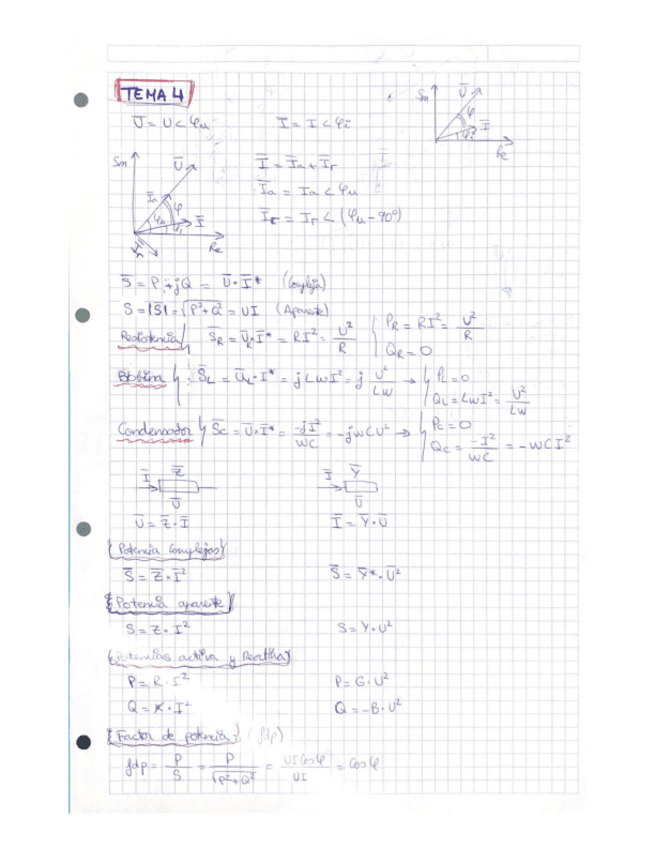 TEMA 4
U̅ = U∠φu    I̅ = I∠φi
Sm U̅ φ I̅ φi Re
Sm U̅ I̅a φ φu I̅ φi Re I̅r
I̅ = I̅a + I̅r
I̅a = Ia∠φu
I̅r = Ir∠(φu - 90º)
S̅ = P + jQ = U̅·I̅* (Compleja)
S = |S̅| = √(P²+Q²) = UI (Aparente)
Resistencia} S̅R = U̅R·I̅* = RI² = U²/R { PR = RI² = U²/R
QR = 0
Bobina } : S̅L = U̅L·I* = jLωI² = j U²/Lω → { PL = 0
QL = LωI² = U²/Lω
Condensador } S̅c = U̅·I̅* = -jI²/ωC = -jωCU² → { Pc = 0
Qc = -I²/ωC = -ωCI²
I̅ Z̅ U̅    I̅ Y̅ U̅
U̅ = Z̅·I̅    I̅ = Y̅·U̅
{Potencia Complejos}
S̅ = Z̅·I̅²    S̅ = Y̅*·U̅²
{Potencia aparente}
S = Z·I²    S = Y·U²
{Potencias activa y Reactiva}
P = R·I²    P = G·U²
Q = X·I²    Q = -B·U²
{Factor de potencia} (fdp)
fdp = P/S = P/√(P²+Q²) = UI cos φ/UI = cos φ